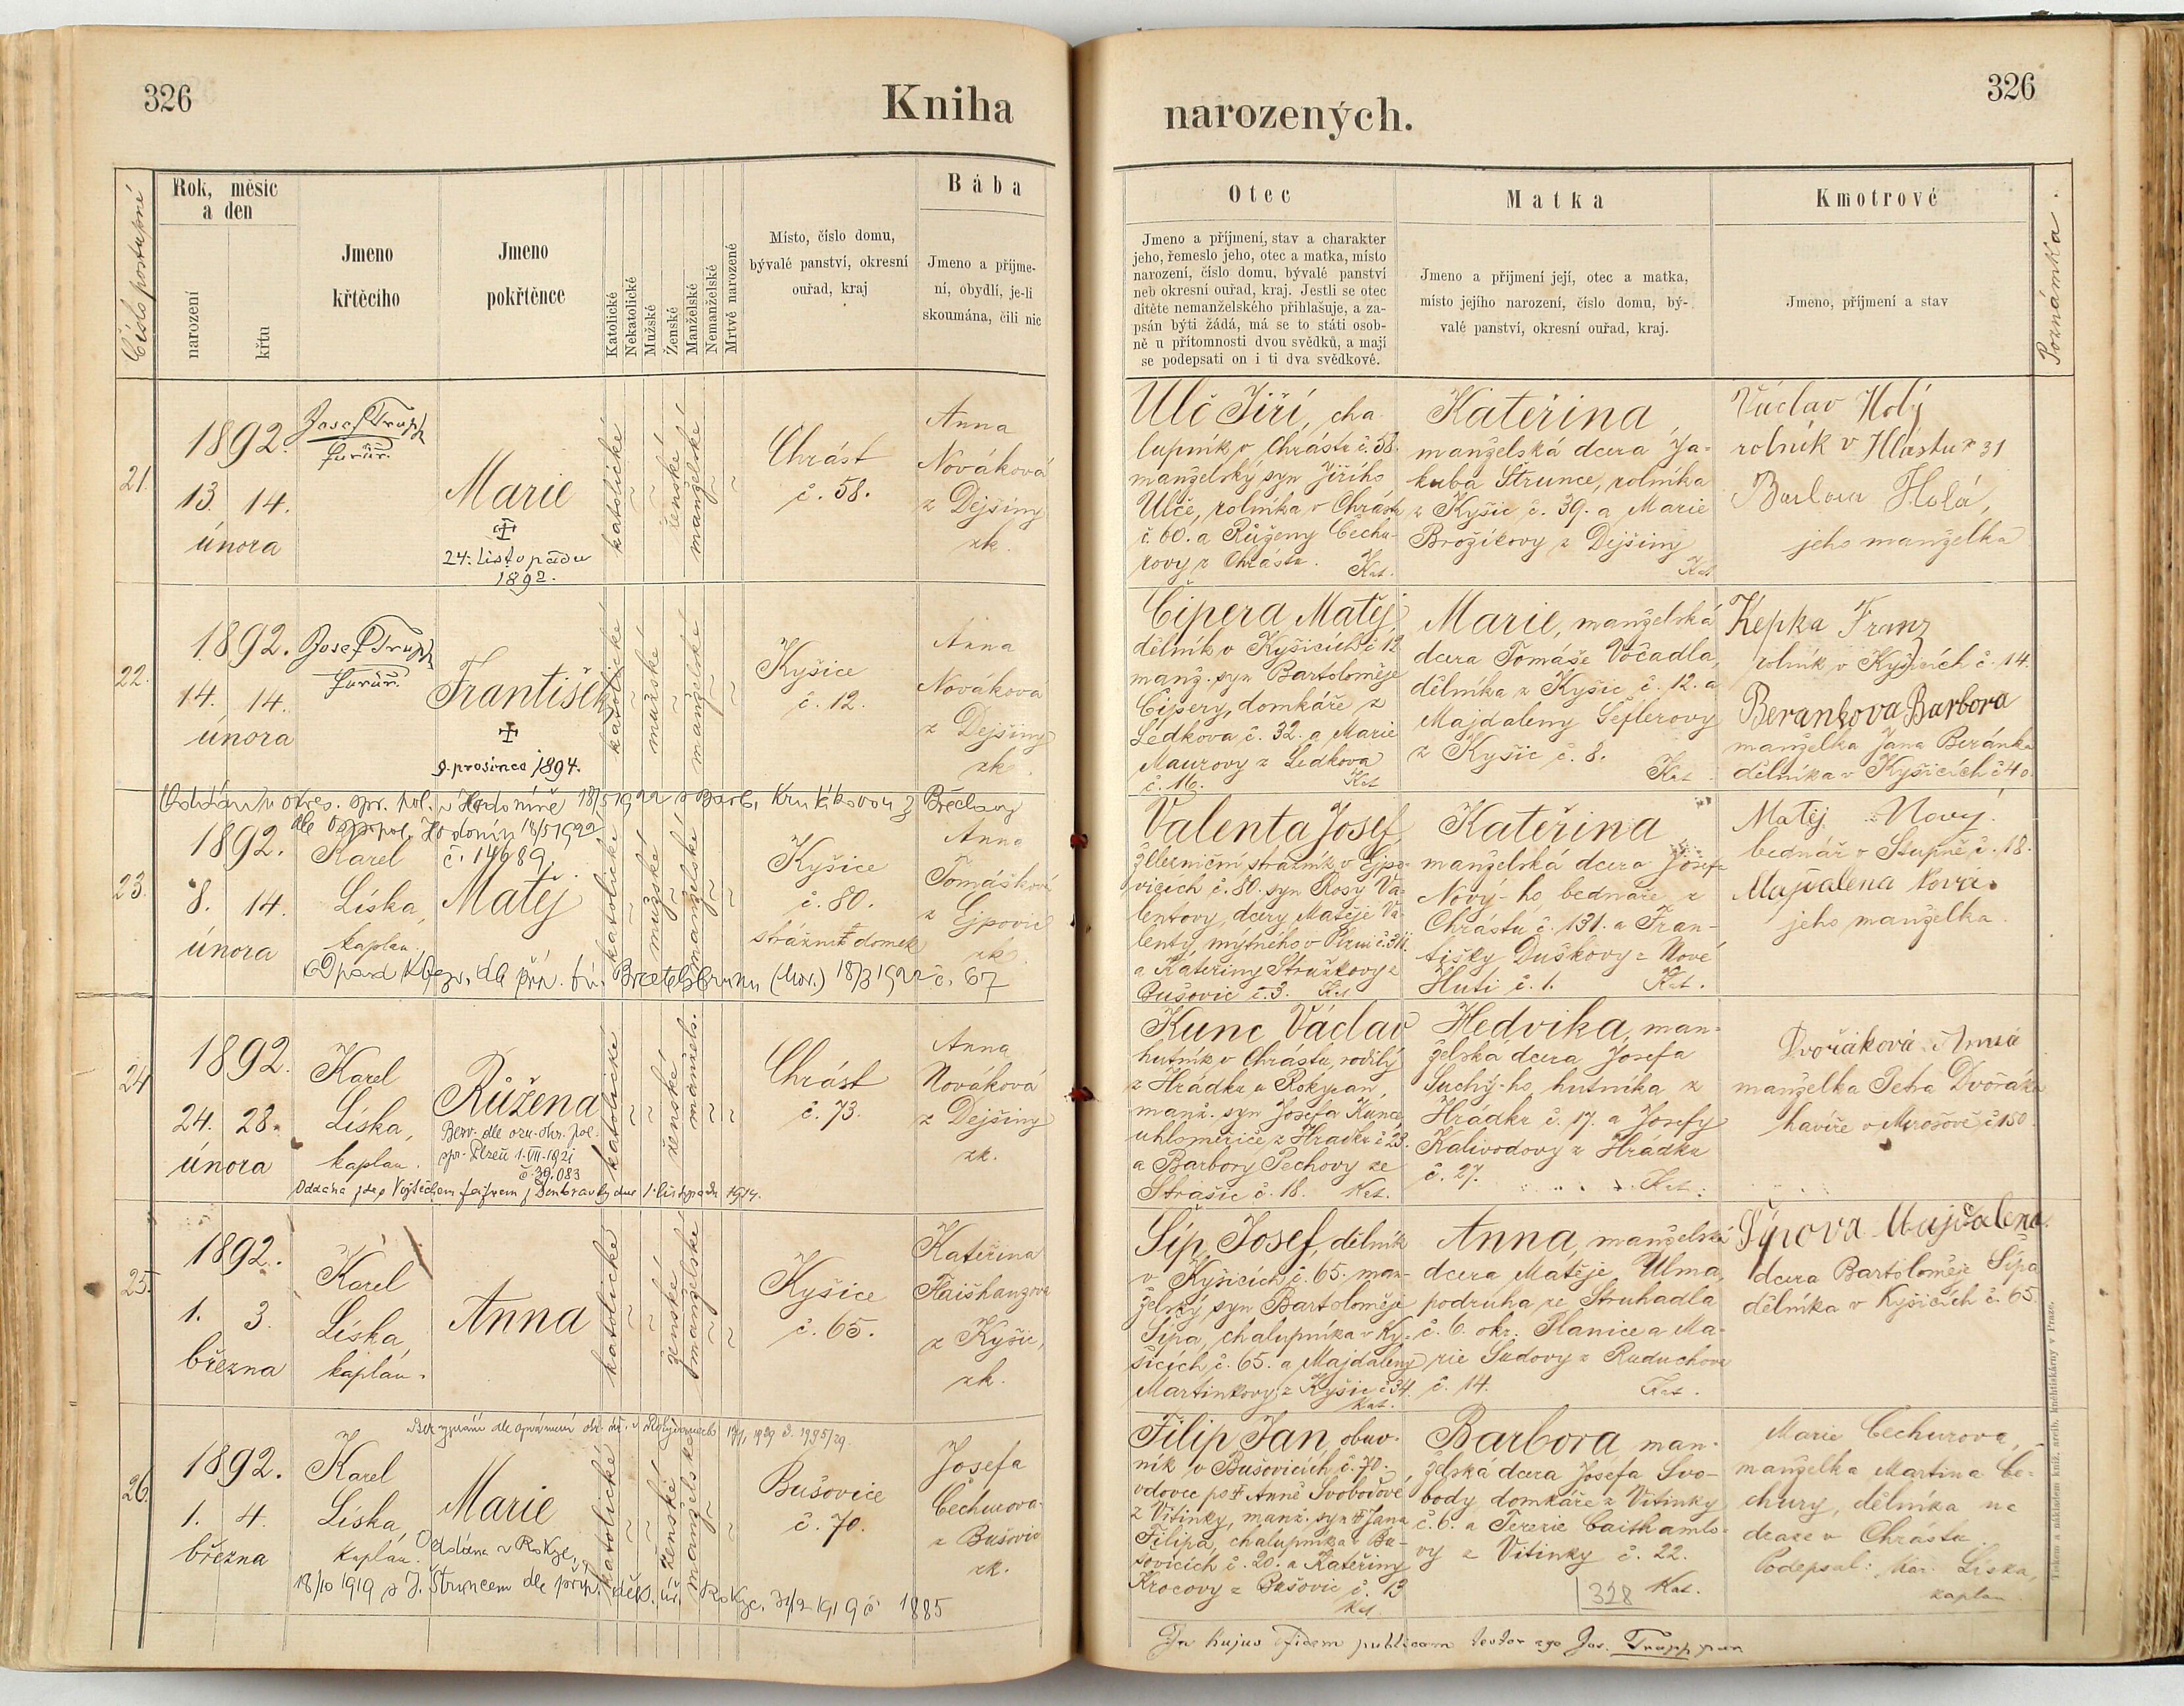 326
Kniha
narozených.
326
Číslo postupné
Rok, měsíc
a den
narození
křtu
Jmeno
křtěcího
Jmeno
pokřtěnce
Katolické
Nekatolické
Mužské
Ženské
Manželské
Nemanželské
Mrtvě narozené
Místo, číslo domu,
bývalé panství, okresní
ouřad, kraj
Bába
Jmeno a přijme-
ní, obydlí, je-li
skoumána, čili nic
Otec
Jmeno a příjmení, stav a charakter
jeho, řemeslo jeho, otec a matka, místo
narození, číslo domu, bývalé panství
neb okresní ouřad, kraj. Jestli se otec
dítěte nemanželského přihlašuje, a za-
psán býti žádá, má se to státi osob-
ně u přítomnosti dvou svědků, a mají
se podepsati on i ti dva svědkové.
Matka
Jmeno a přijmení její, otec a matka,
místo jejího narození, číslo domu, bý-
valé panství, okresní ouřad, kraj.
Kmotrové
Jmeno, příjmení a stav
Poznámka.
21.
1892.
13. 14.
února
Josef Trapp
farář.
Marie
24. listopadu
1892.
katolické
ženské
manželské
Chrást
č. 58.
Anna
Nováková
z Dejšiny
zk.
Ulč Jiří, cha-
lupník v Chrástu č. 58.
manželský syn Jiřího
Ulče, rolníka v Chrástu
č. 60. a Růženy Čechu-
rovy z Chrástu. Kat.
Kateřina
manželská dcera Ja-
kuba Strunce, rolníka
z Kyšic č. 39. a Marie
Brožíkovy z Dejšiny
Kat
Václav Holý
rolník v
31
Holá,
jeho manželka
22.
1892.
14. 14.
února
Josef Trapp
farář.
František
9. prosince 1894.
katolické
mužské
manželské
Kyšice
č. 12.
Anna
Nováková
z Dejšiny
zk.
Čipera Matěj,
dělník v Kyšicích č. 12
manž. syn Bartoloměje
Čipery, domkáře z
Ledkova č. 32. a Marie
Maurovy z Ledkova
č. 16. Kat
Marie, manželská
dcera Tomáše Vočadla,
dělníka z Kyšic č. 12. a
Majdaleny Šeflerovy
z Kyšic č. 8. Kat.
Kepka Franz
rolník v Kyšicích č. 14.
Berankova Barbora
manželka Jana Beránka
dělníka v Kyšicích č 40.
okres. spr. pol. v Hodoníně 18/5 1922 s Barb.
dle Hodonín 18/5 1922
č. 14689.
23.
1892.
8. 14.
února
Karel
Líska,
kaplan.
Matěj
katolické
mužské
manželské
Kyšice
č. 80.
strážní domek
Anna
Tomášková
z Ejpovic
zk.
dle příp. 18/3 1922 č. 67
Valenta Josef
železniční strážník v Ejpo-
vicích č. 80. syn Rosy Va-
lentovy, dcery Matěje Va-
lenty, mýtného v Plzni
a Kateřiny
Bušovic č. 3. Kat
Kateřina
manželská dcera Josef-
Nový-ho, bednáře z
Chrástu č. 131. a Fran-
tišky Duškovy z Nové
Huti č. 1. Kat.
Matěj Nový
bednář v Stupně č. 18.
Majdalena Nova.
jeho manželka.
24
1892.
24. 28.
února
Karel
Líska,
kaplan.
Růžena
spr. Plzeň 1. VII. 1921
č. 39.083
katolické
ženské
manžels.
Chrást
č. 73.
Anna
Nováková
z Dejšiny
zk.
dne 1. listopadu 1914.
Kunc Václav
hutník v Chrástu, rodilý
z Hrádku u Rokycan,
manž. syn Josefa Kunce,
uhloměřiče z Hrádku č 23.
a Barbory Pechovy ze
Strašic č. 18. Kat.
Hedvika, man-
želská dcera Josefa
Suchý-ho, hutníka z
Hrádku č. 17. a Josefy
Kalivodovy z Hrádku
č. 27. Kat.
Dvořáková Anna
manželka Petra Dvořáka
havíře v Mirošově č 150.
25.
1892.
1. 3.
března
Karel
Líska,
kaplan.
Anna
katolické
ženské
manželské
Kyšice
č. 65.
Kateřina
z Kyšic,
zk.
Šíp Josef, dělník
v Kyšicích č. 65. man-
želský syn Bartoloměje
Šípa, chalupníka v Ky-
šicích č. 65. a Majdaleny
Martinkovy z Kyšic č 34.
Kat.
Anna, manželská
dcera Matěje Ulma,
podruha ze Struhadla
č. 6. okr. Planice a Ma-
rie Sudovy z
č. 14. Kat.
Šýpova Majdalena.
dcera Bartoloměje Šípa
dělníka v Kyšicích č. 65.
26.
1892.
1. 4.
března
Karel
Líska,
kaplan.
Marie
katolické
ženské
manželské
Bušovice
č. 70.
Josefa
Čechurova
z Bušovic
zk.
Oddána v Rokyc.
18/10 1919 s J. Štruncem dle příp. úř. Rokyc. 31/12 1919 č. 1885
Filip Jan, obuv-
ník v Bušovicích č. 70.
vdovec po Anně Svobodové
z Vitinky, manž. syn Jana
Filipa, chalupníka v Bu-
šovicích č. 20. a Kateřiny
Krocovy z Bušovic č. 13
Kat.
Barbora, man-
želská dcera Josefa Svo-
body, domkáře z Vitinky
č. 6. a Terezie
vy z Vitinky č. 22.
328 Kat.
Marie Čechurova,
manželka Martina Če-
chury, dělníka na
dráze v Chrástu
Podepsal: Kar. Líska,
kaplan
In hujus fidem publicam testor ego Jos. Trapp
Tiskem a nákladem kníž. arcib. knihtiskárny v Praze.